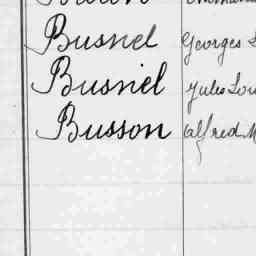 Busnel Georges
Busnel Jules
Busson Alfred